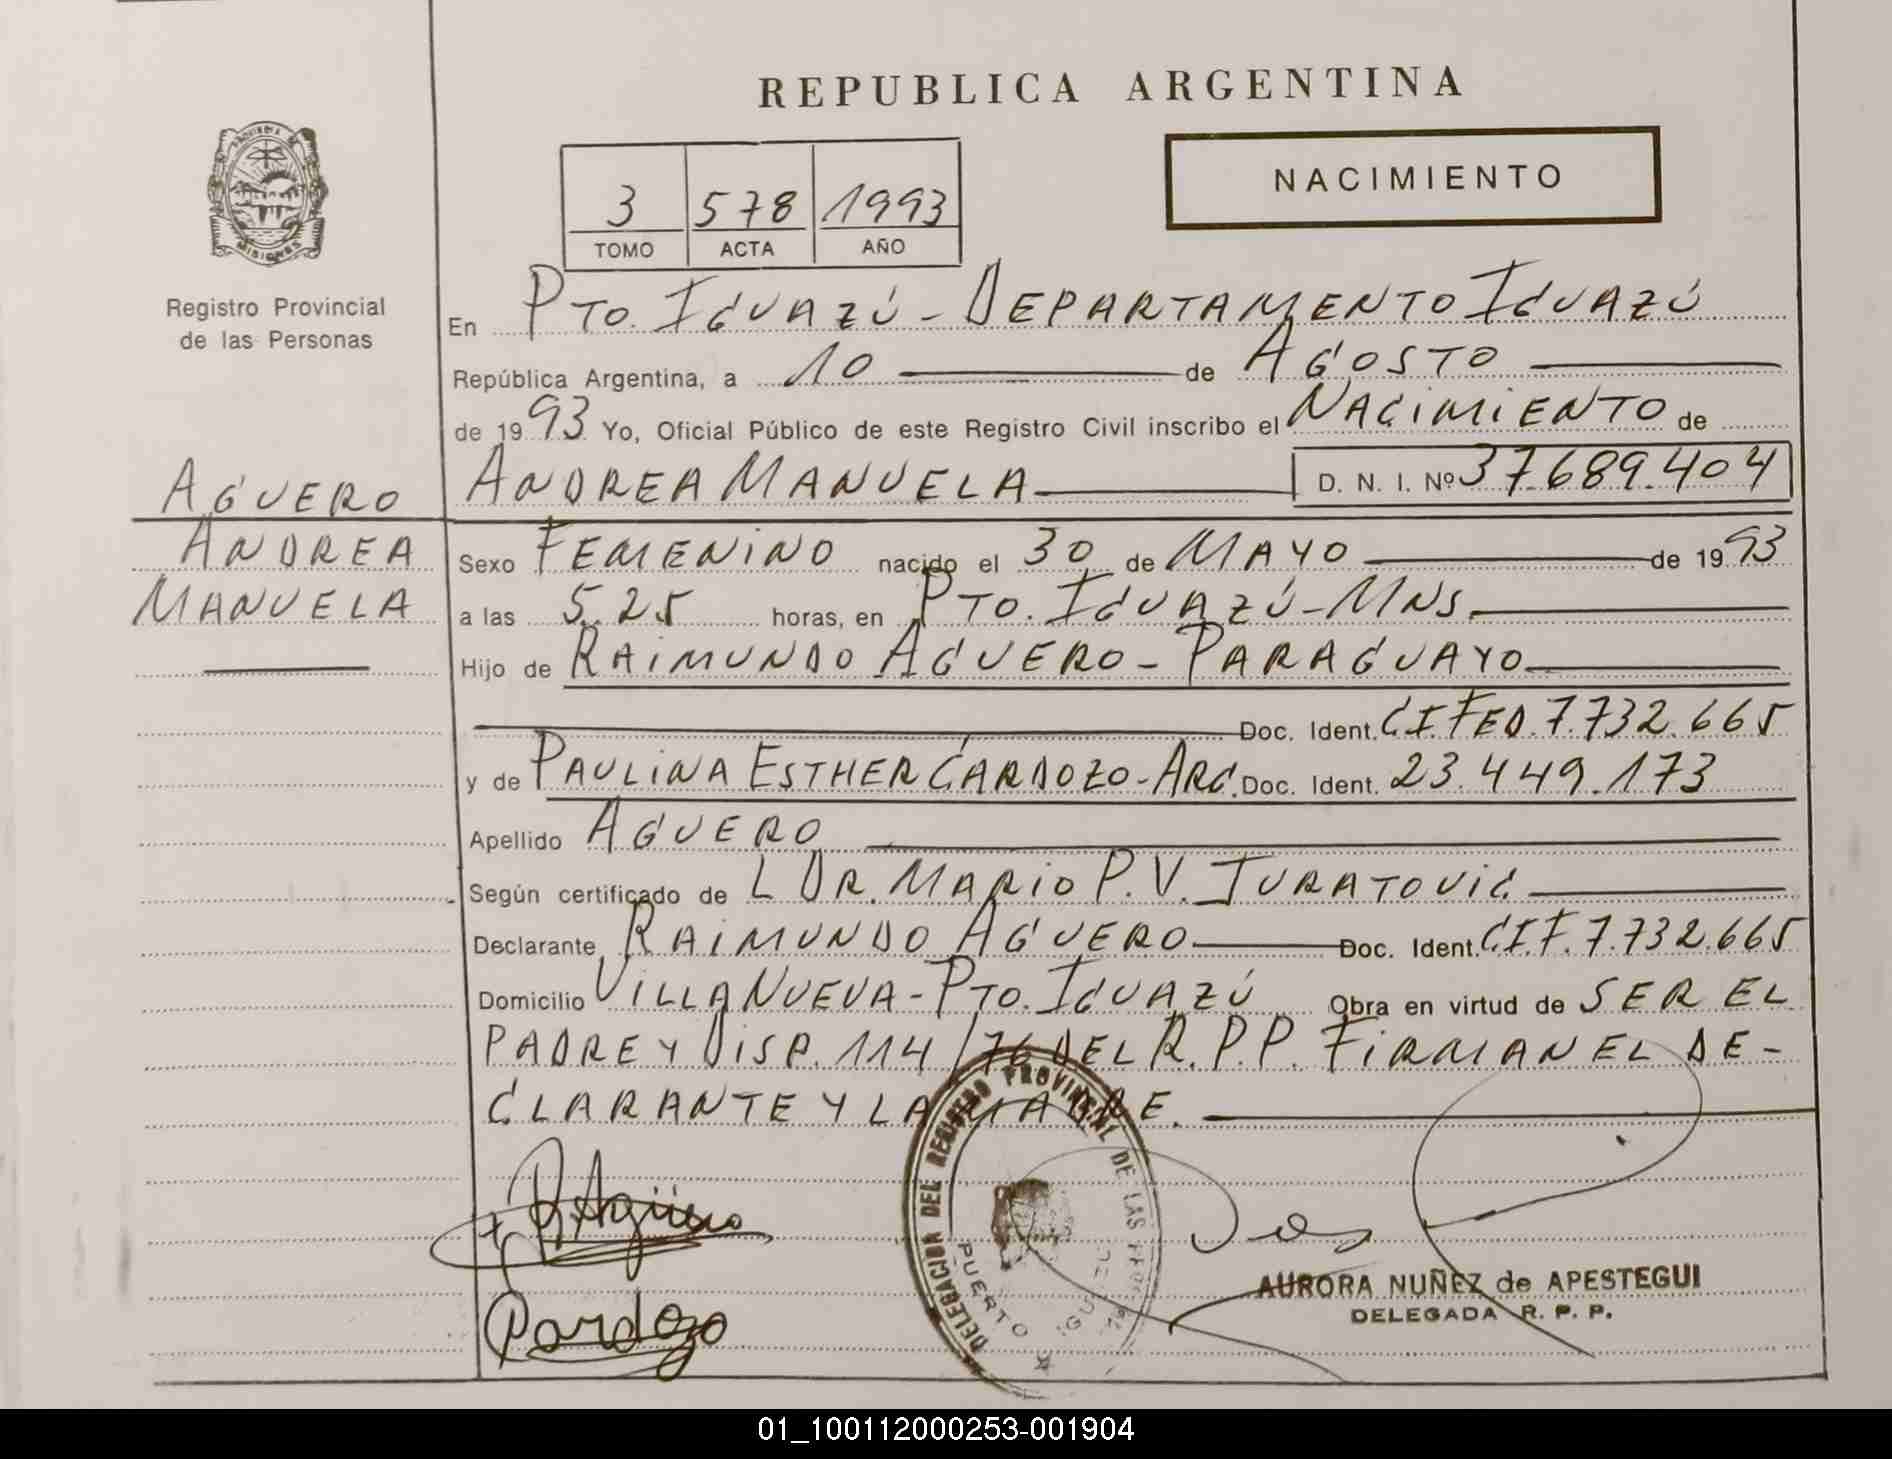 REPUBLICA ARGENTINA
NACIMIENTO
3 578 1993
TOMO ACTA AÑO
PROVINCIA
MISIONES
Registro Provincial
de las Personas
En PTO. IGUAZÚ - DEPARTAMENTO IGUAZÚ
República Argentina, a 10 de AGOSTO
de 1993 Yo, Oficial Público de este Registro Civil inscribo el NACIMIENTO de
AGUERO ANDREA MANUELA D. N. I. Nº 37.689.404
ANDREA Sexo FEMENINO nacido el 30 de MAYO de 1993
MANUELA a las 5.25 horas, en PTO. IGUAZÚ - MNS.
Hijo de RAIMUNDO AGUERO - PARAGUAYO
Doc. Ident. CI.FED.7.732.665
y de PAULINA ESTHER CARDOZO - ARG. Doc. Ident. 23.449.173
Apellido AGUERO
Según certificado de L DR. MARIO P.V. JURATOVIC
Declarante RAIMUNDO AGUERO Doc. Ident. C.I.F. 7.732.665
Domicilio VILLA NUEVA - PTO. IGUAZÚ Obra en virtud de SER EL
PADRE Y DISP. 114/76 DEL R.P.P. FIRMAN EL DE-
CLARANTE Y LA MADRE.
R Agüero
Cardozo
DELEGACION DEL REGISTRO PROVINCIAL DE LAS
PUERTO IGUAZU
AURORA NUÑEZ de APESTEGUI
DELEGADA R. P. P.
01_100112000253-001904